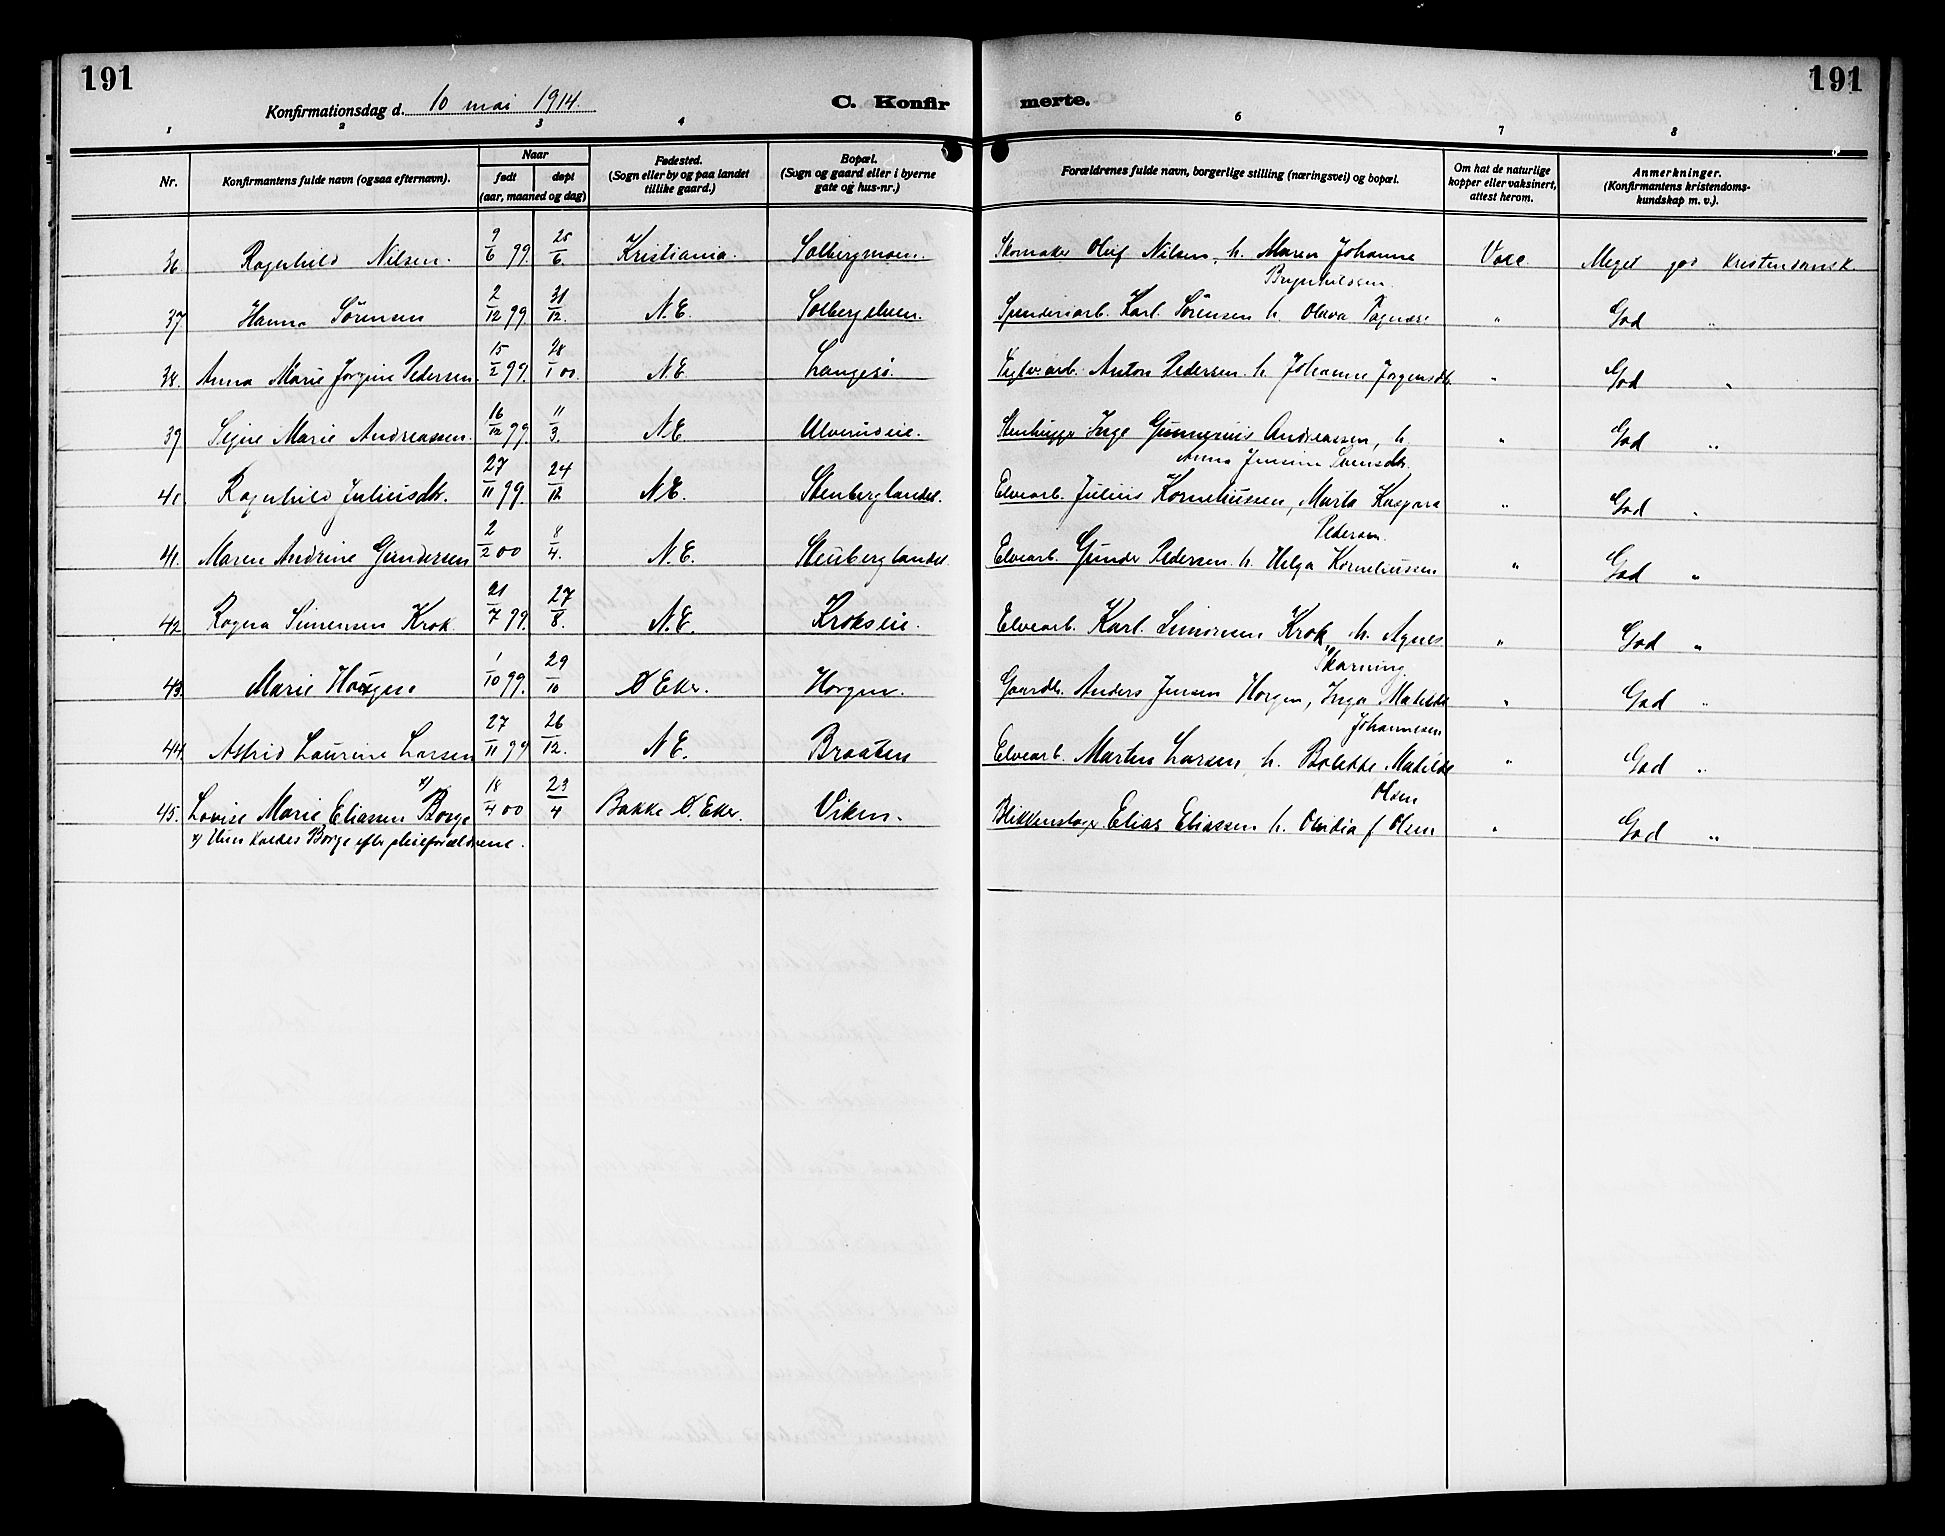 191
191
Konfirmationsdag d. 10 mai 1914.
C. Konfir
merte.
1 2 3 4 6 7 8
Nr.
Konfirmantens fulde navn (ogsaa efternavn).
Naar
født
døpt
(aar, maaned og dag)
Fødested.
(Sogn eller by og paa landet
tillike gaard.)
Bopæl.
(Sogn og gaard eller i byerne
gate og hus-nr.)
Forældrenes fulde navn, borgerlige stilling (næringsvei) og bopæl.
Om hat de naturlige
kopper eller vaksinert,
attest herom.
Anmerkninger.
(Konfirmantens kristendoms-
kundskap m. v.).
36. Ragnhild Nilsen. 9/6 99. 25/6. Kristiania. Solbergmoen. Skomaker Oluf Nilsen, h. Maren Johanne Vacc. Meget god kristendomsk.
37 Hanna Sørensen 2/12 99. 31/12. N.E. Solbergelven. Karl Sørensen h. Olava " God "
38. Anna Marie Jorgine Pedersen. 15/2 99. 28/1 00. N.E. Langesø. Anton Pedersen. h. Johanne Jørgensdtr. " God "
39. Signe Marie Andreassen. 16/12 99. 11/3. N.E. Ulverudeie. Stenhugger Inge Gunnerius Andreassen, h. " God "
Anna Jensine Svensdtr.
41. Ragnhild Juliusdtr. 27/11 99. 24/12 N.E. Stenberglandet. Elvearb. Julius Korneliussen, Marta Kaspara " God "
Pedersen.
41. Maren Andrine Gundersen 2/2 00 8/4. N.E. Stenberglandet Elvearb. Gunder Pedersen. h. Helga Korneliussen " God "
42 Ragna Simensen Krok. 21/7 99. 27/8. N.E. Krokseie. Elvearb. Karl Simensen Krok, h. Agnes " God "
Skarning
43. Marie Horgen 1/10 99. 29/10 Ø Eker. Horgen. Gaardbr. Anders Jensen Horgen, Inga Matilde " God "
Johannesen
44. Astrid Laurine Larsen 27/11 99 26/12. N.E. Braaten Elvearb. Martin Larsen, h. Bolette Matilde " God "
Olsen
45. Lovise Marie Eliassen x) Borge 18/4 00 23/4 Bakke Ø. Eker. Viken. Blikkenslager Elias Eliassen h. Olvidia f Olsen " God "
x) Hun kaldes Borge efter pleieforældrene.